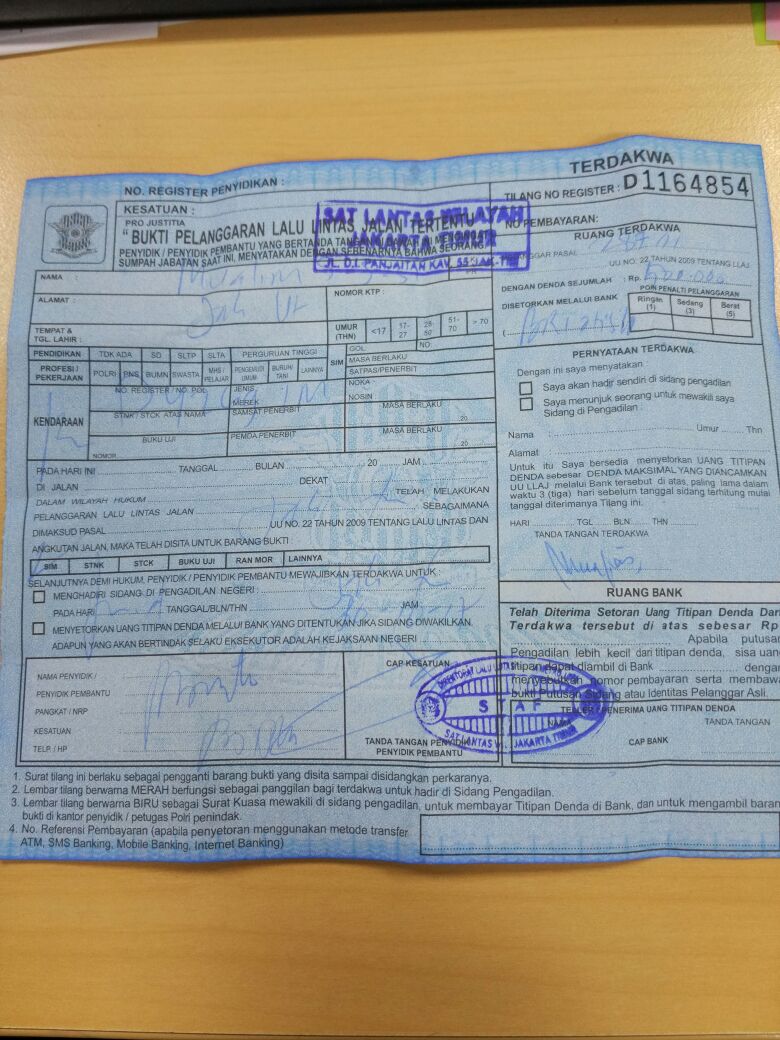 TERDAKWA
NO. REGISTER PENYIDIKAN :
TILANG NO REGISTER : D1164854
KESATUAN :
SAT LANTAS WILAYAH
JL. D.I. PANJAITAN KAV. 55 JAK-TIM
NO PEMBAYARAN:
PRO JUSTITIA
"BUKTI PELANGGARAN LALU LINTAS JALAN TERTENTU
PENYIDIK / PENYIDIK PEMBANTU YANG BERTANDA TANGAN DI BAWAH INI MENGINGAT
SUMPAH JABATAN SAAT INI, MENYATAKAN DENGAN SEBENARNYA BAHWA SEORANG
NAMA
ALAMAT :
NOMOR KTP :
TEMPAT &
TGL. LAHIR :
UMUR
(THN)
<17
17-
27
28-
51-
70
> 70
PENDIDIKAN TDK ADA SD SLTP SLTA PERGURUAN TINGGI
PROFESI /
PEKERJAAN
POLRI PNS BUMN SWASTA MHS /
PELAJAR
PENGEMUDI
UMUM
BURUH/
TANI
LAINNYA
SIM
GOL. NO.
MASA BERLAKU
SATPAS/PENERBIT
KENDARAAN
NO. REGISTER / NO. POL
JENIS,
MEREK
NOKA :
NOSIN :
STNK / STCK ATAS NAMA
SAMSAT PENERBIT
MASA BERLAKU
20
BUKU UJI
NOMOR
PEMDA PENERBIT
MASA BERLAKU
20
PADA HARI INI TANGGAL BULAN 20 JAM
DI JALAN DEKAT
DALAM WILAYAH HUKUM TELAH MELAKUKAN
PELANGGARAN LALU LINTAS JALAN SEBAGAIMANA
DIMAKSUD PASAL UU NO. 22 TAHUN 2009 TENTANG LALU LINTAS DAN
ANGKUTAN JALAN, MAKA TELAH DISITA UNTUK BARANG BUKTI :
SIM STNK STCK BUKU UJI RAN MOR LAINNYA
SELANJUTNYA DEMI HUKUM, PENYIDIK / PENYIDIK PEMBANTU MEWAJIBKAN TERDAKWA UNTUK :
MENGHADIRI SIDANG DI PENGADILAN NEGERI :
PADA HARI TANGGAL/BLN/THN JAM
MENYETORKAN UANG TITIPAN DENDA MELALUI BANK YANG DITENTUKAN JIKA SIDANG DIWAKILKAN.
ADAPUN YANG AKAN BERTINDAK SELAKU EKSEKUTOR ADALAH KEJAKSAAN NEGERI
NAMA PENYIDIK /
PENYIDIK PEMBANTU
PANGKAT / NRP
KESATUAN
TELP / HP
CAP KESATUAN
STAF
TANDA TANGAN PENYIDIK/
PENYIDIK PEMBANTU
RUANG TERDAKWA
UU NO. 22 TAHUN 2009 TENTANG LLAJ
DENGAN DENDA SEJUMLAH Rp. 500.000
DISETORKAN MELALUI BANK
POIN PENALTI PELANGGARAN
Ringan
(1)
Sedang
(3)
Berat
(5)
PERNYATAAN TERDAKWA
Dengan ini saya menyatakan :
Saya akan hadir sendiri di sidang pengadilan
Saya menunjuk seorang untuk mewakili saya
Sidang di Pengadilan :
Nama : Umur Thn
Alamat
Untuk itu Saya bersedia menyetorkan UANG TITIPAN
DENDA sebesar DENDA MAKSIMAL YANG DIANCAMKAN
UU LLAJ melalui Bank tersebut di atas, paling lama dalam
waktu 3 (tiga) hari sebelum tanggal sidang terhitung mulai
tanggal diterimanya Tilang ini.
HARI TGL BLN THN
TANDA TANGAN TERDAKWA
RUANG BANK
Telah Diterima Setoran Uang Titipan Denda Dari
Terdakwa tersebut di atas sebesar Rp
Apabila putusan
Pengadilan lebih kecil dari titipan denda, sisa uang
titipan dapat diambil di Bank dengan
menyebutkan nomor pembayaran serta membawa
bukti Putusan Sidang atau Identitas Pelanggar Asli.
TELLER / PENERIMA UANG TITIPAN DENDA
NAMA TANDA TANGAN
CAP BANK
1. Surat tilang ini berlaku sebagai pengganti barang bukti yang disita sampai disidangkan perkaranya.
2. Lembar tilang berwarna MERAH berfungsi sebagai panggilan bagi terdakwa untuk hadir di Sidang Pengadilan.
3. Lembar tilang berwarna BIRU sebagai Surat Kuasa mewakili di sidang pengadilan, untuk membayar Titipan Denda di Bank, dan untuk mengambil barang
bukti di kantor penyidik / petugas Polri penindak.
4. No. Referensi Pembayaran (apabila penyetoran menggunakan metode transfer
ATM, SMS Banking, Mobile Banking, Internet Banking)